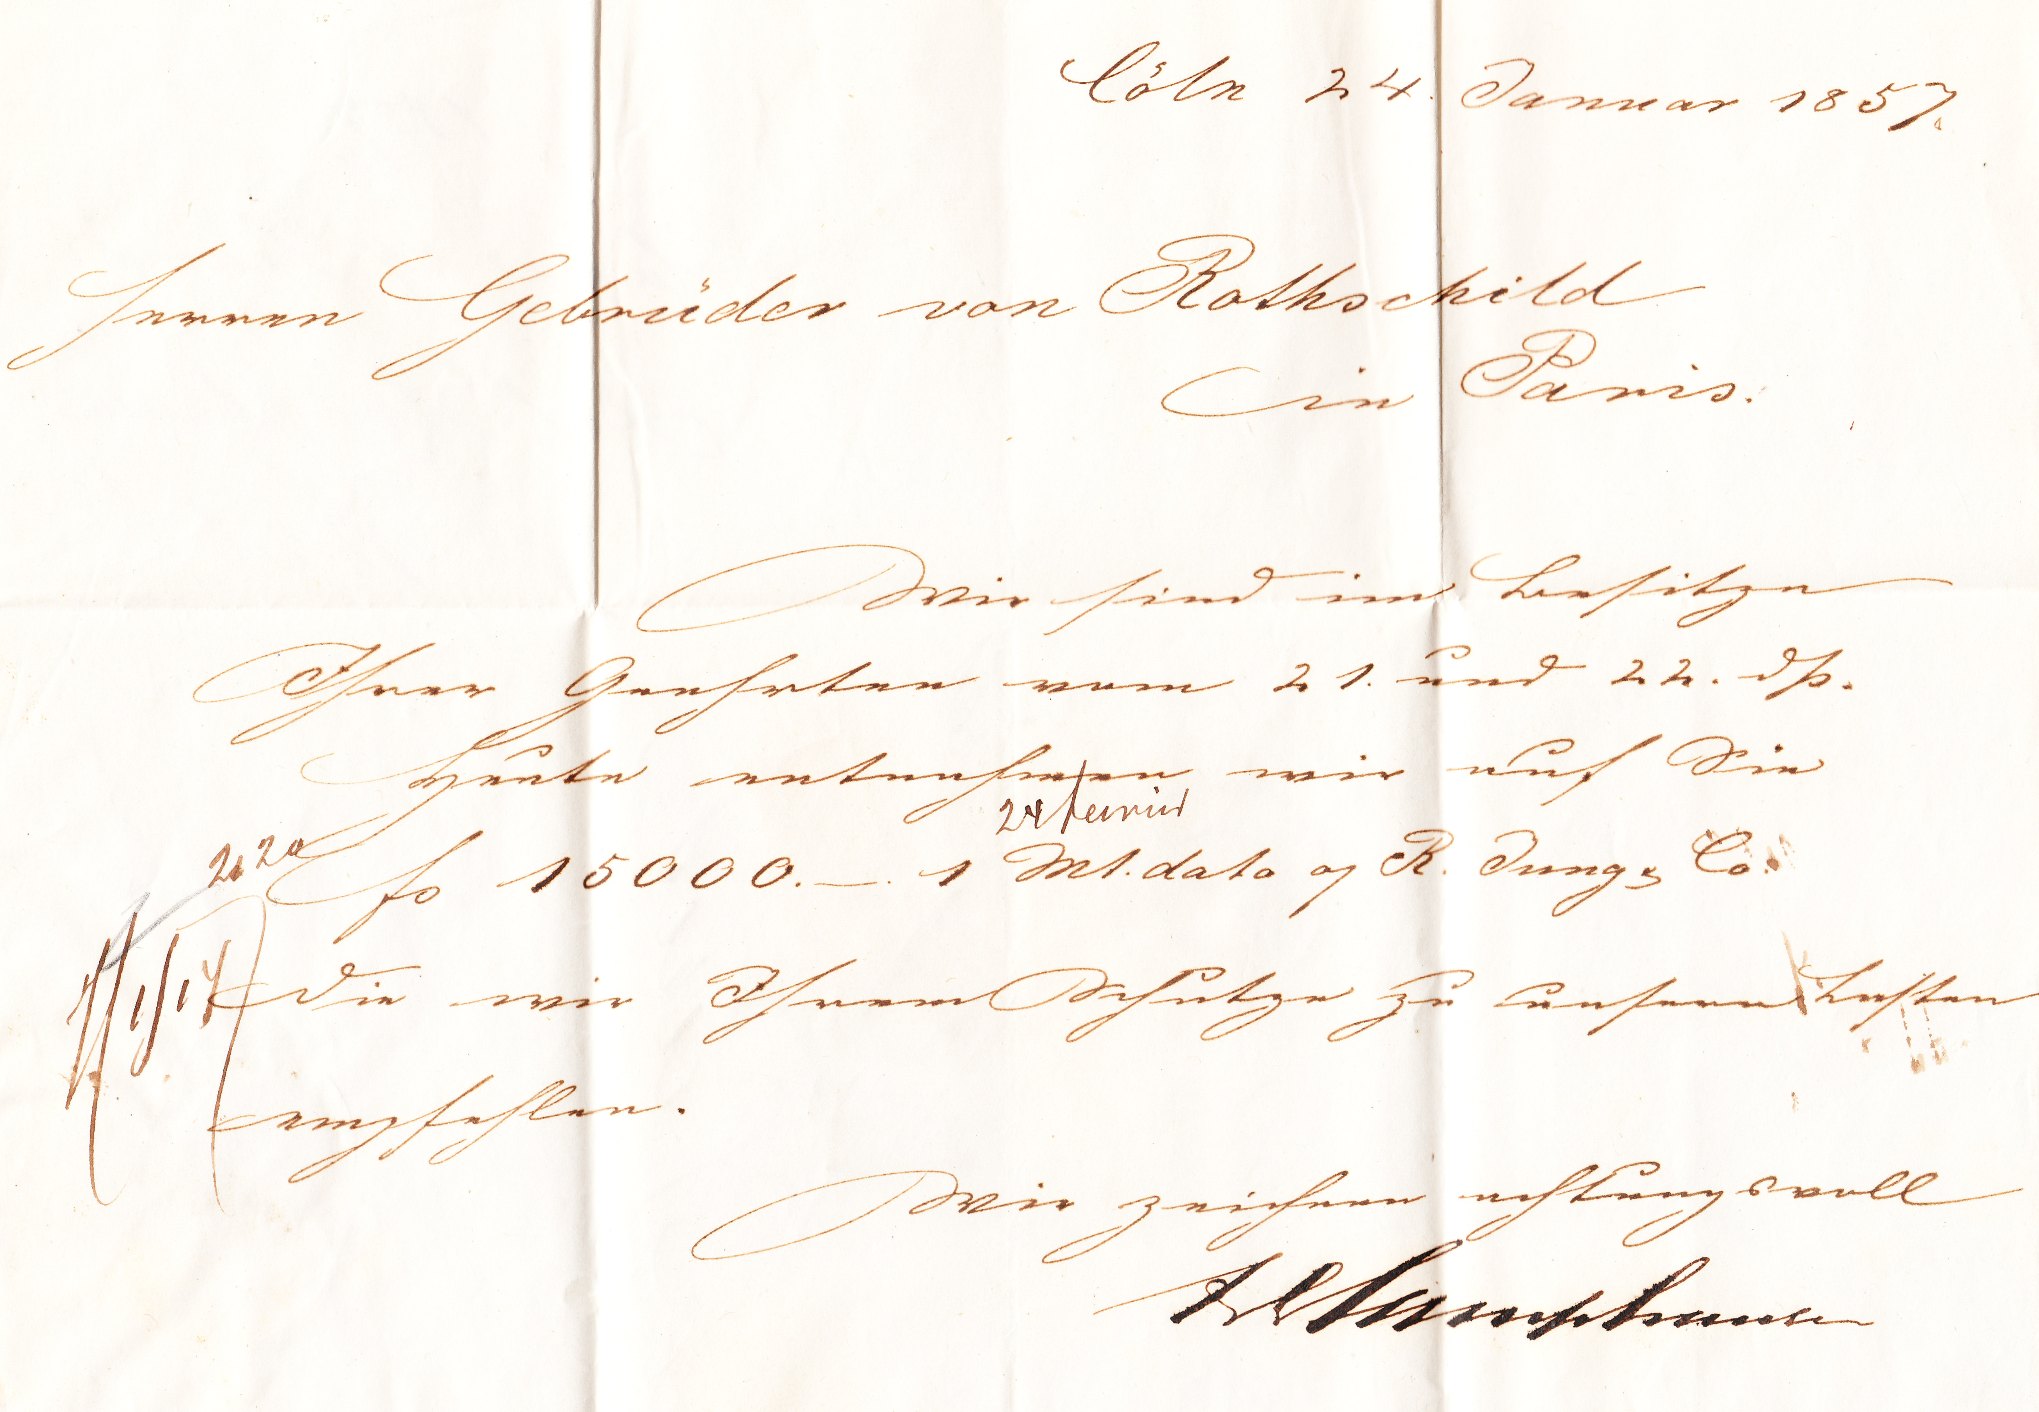 Cöln 24. Januar 1857.
Herren Gebrüder von Rothschild
in Paris.
Wir sind im Besitze
Ihrer Geehrten vom 21. und 22. ds.
Heute entnehmen wir auf Sie
24 fevrier
2020
fs 15000.—. 1 Mt. dato o/ R. Jung & Co.
die wir Ihrem Schutze zu unsern Lasten
empfehlen.
Wir zeichnen achtungsvoll
A & L Camphausen